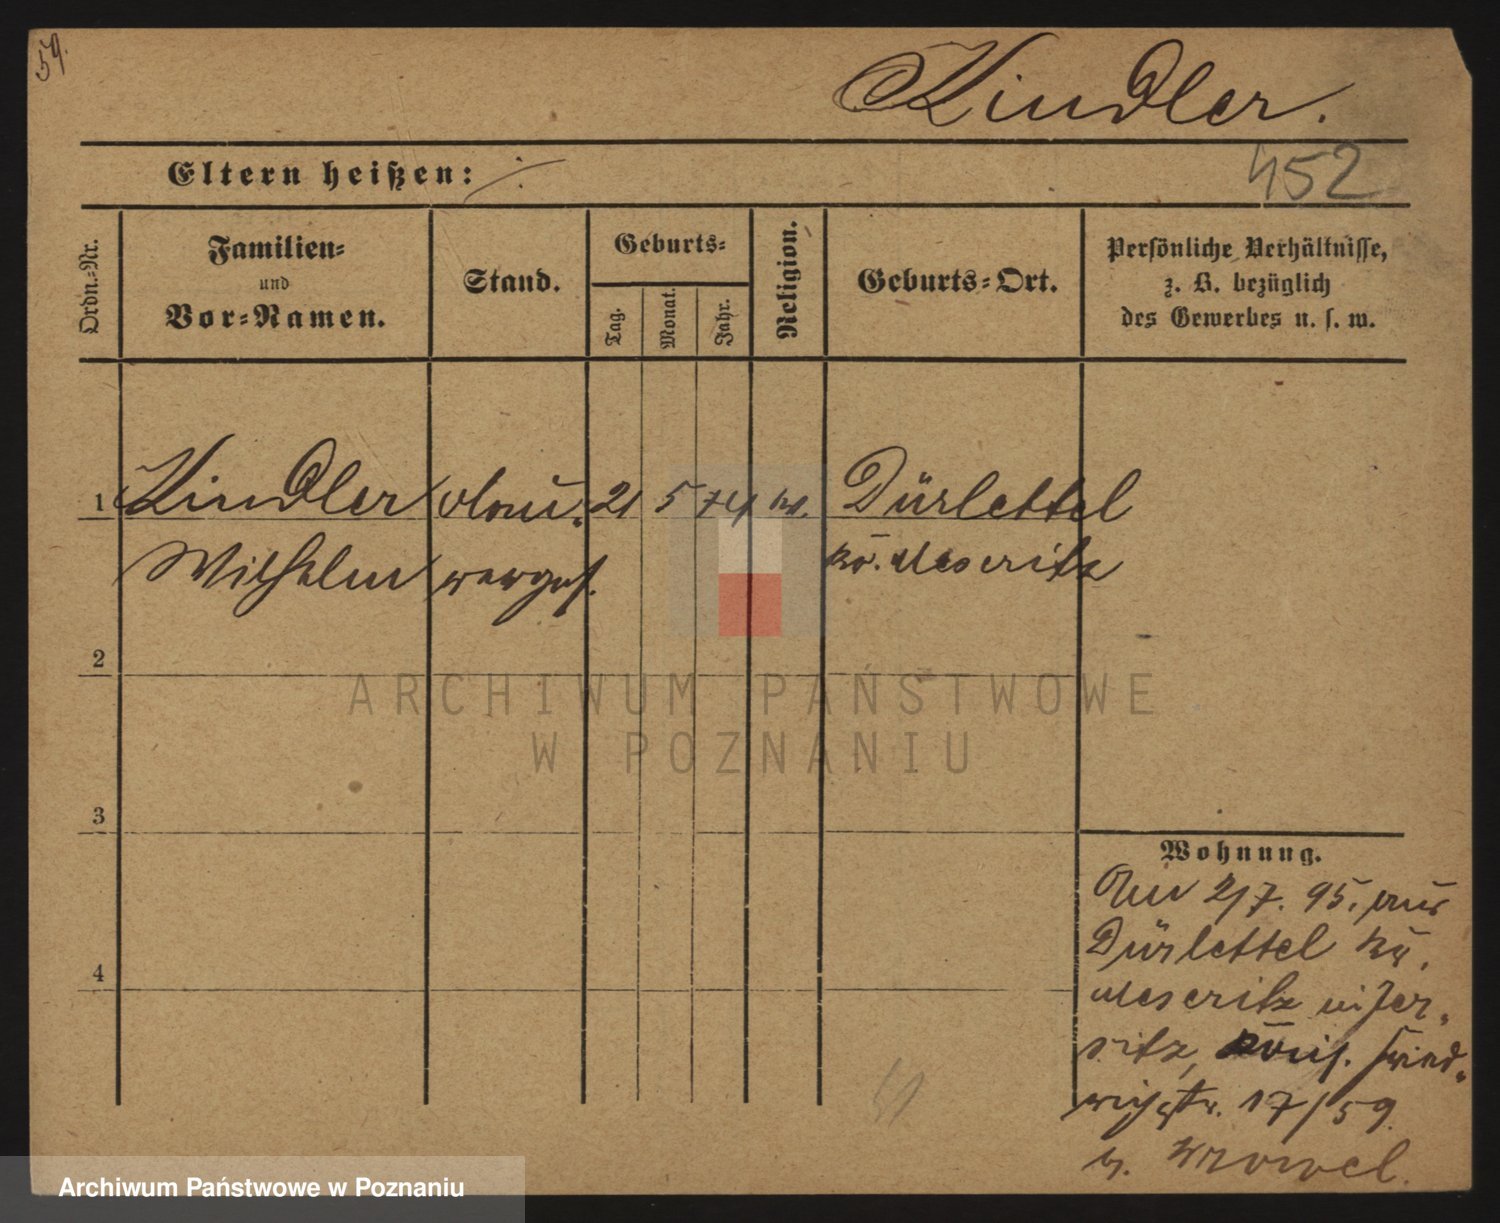 59.
Kindler.
Eltern heißen: ./.
452
Ordn.-Nr.
Familien-
und
Vor-Namen.
Stand.
Geburts-
Tag.
Monat.
Jahr.
Religion.
Geburts-Ort.
Persönliche Verhältnisse,
z. B. bezüglich
des Gewerbes u. s. w.
1 Kindler 21 5 74 Dürlettel
Wilhelm Kr. Meseritz
2
3
4
Wohnung.
Am 2/7. 95. aus
Dürlettel Kr.
Meseritz in Jer-
sitz,
17/59
51
ARCHIWUM PAŃSTWOWE
W POZNANIU
Archiwum Państwowe w Poznaniu